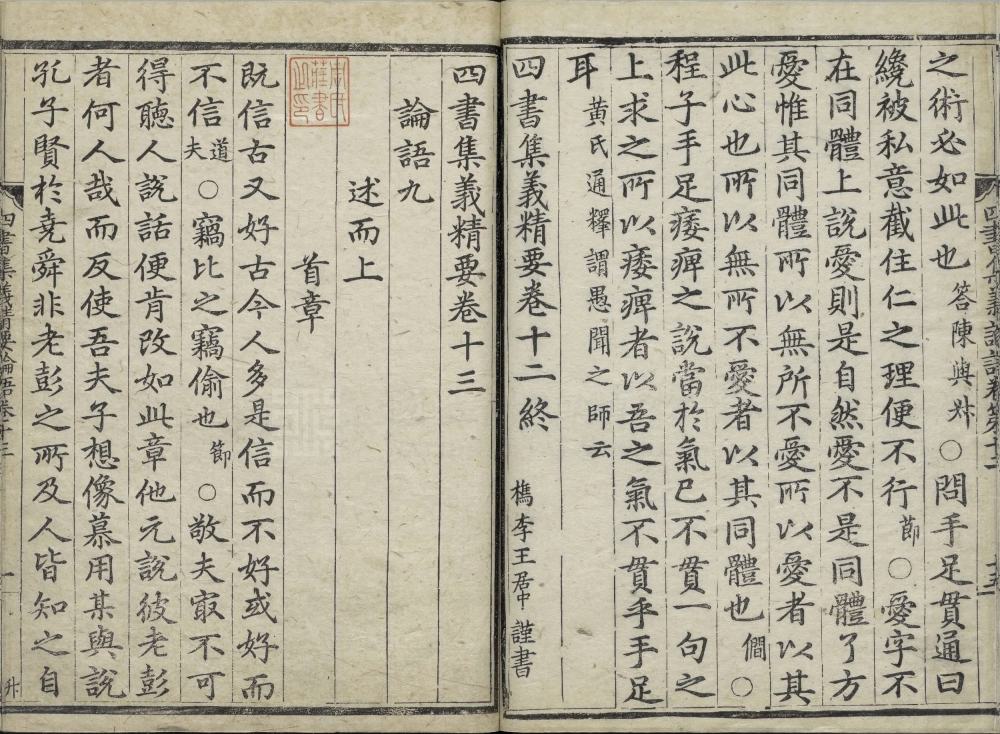 之術必如此也答陳與叔○問手足貫通曰
纔被私意截住仁之理便不行節○愛字不
在同體上說愛則是自然愛不是同體了方
愛惟其同體所以無所不愛所以愛者以其
此心也所以無所不愛者以其同體也僩○
程子手足痿痺之說當於氣已不貫一句之
上求之所以痿痺者以吾之氣不貫乎手足
耳黃氏通釋謂愚聞之師云
四書集義精要卷十二終 檇李王居中謹書
四書集義精要卷十三
論語九
述而上
首章
既信古又好古今人多是信而不好或好而
不信道夫○竊比之竊偷也節○敬夫㝡不可
得聽人說話便肯改如此章他元說彼老彭
者何人哉而反使吾夫子想像慕用某與說
孔子賢於堯舜非老彭之所及人皆知之自
四書集義精要論語卷十三